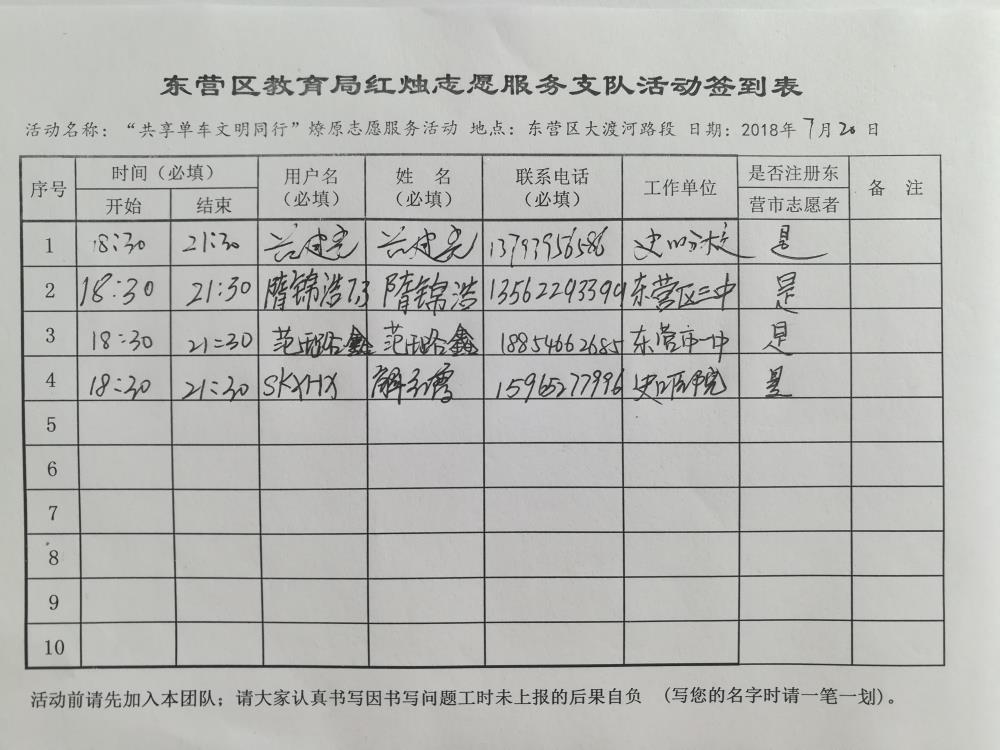 东营区教育局红烛志愿服务支队活动签到表
活动名称：“共享单车文明同行”燎原志愿服务活动 地点：东营区大渡河路段 日期：2018年 7月20日
序号 时间（必填） 用户名（必填） 姓 名（必填） 联系电话（必填） 工作单位 是否注册东营市志愿者 备 注
开始 结束
1 18:30 21:30 13793956586 是
2 18:30 21:30 隋锦浩73 隋锦浩 13562293399 东营区三中 是
3 18:30 21:30 范璐鑫 范璐鑫 18854662685 东营市一中 是
4 18:30 21:30 SKXHX 解雪 15965277996 史口医院 是
5
6
7
8
9
10
活动前请先加入本团队；请大家认真书写因书写问题工时未上报的后果自负 （写您的名字时请一笔一划）。